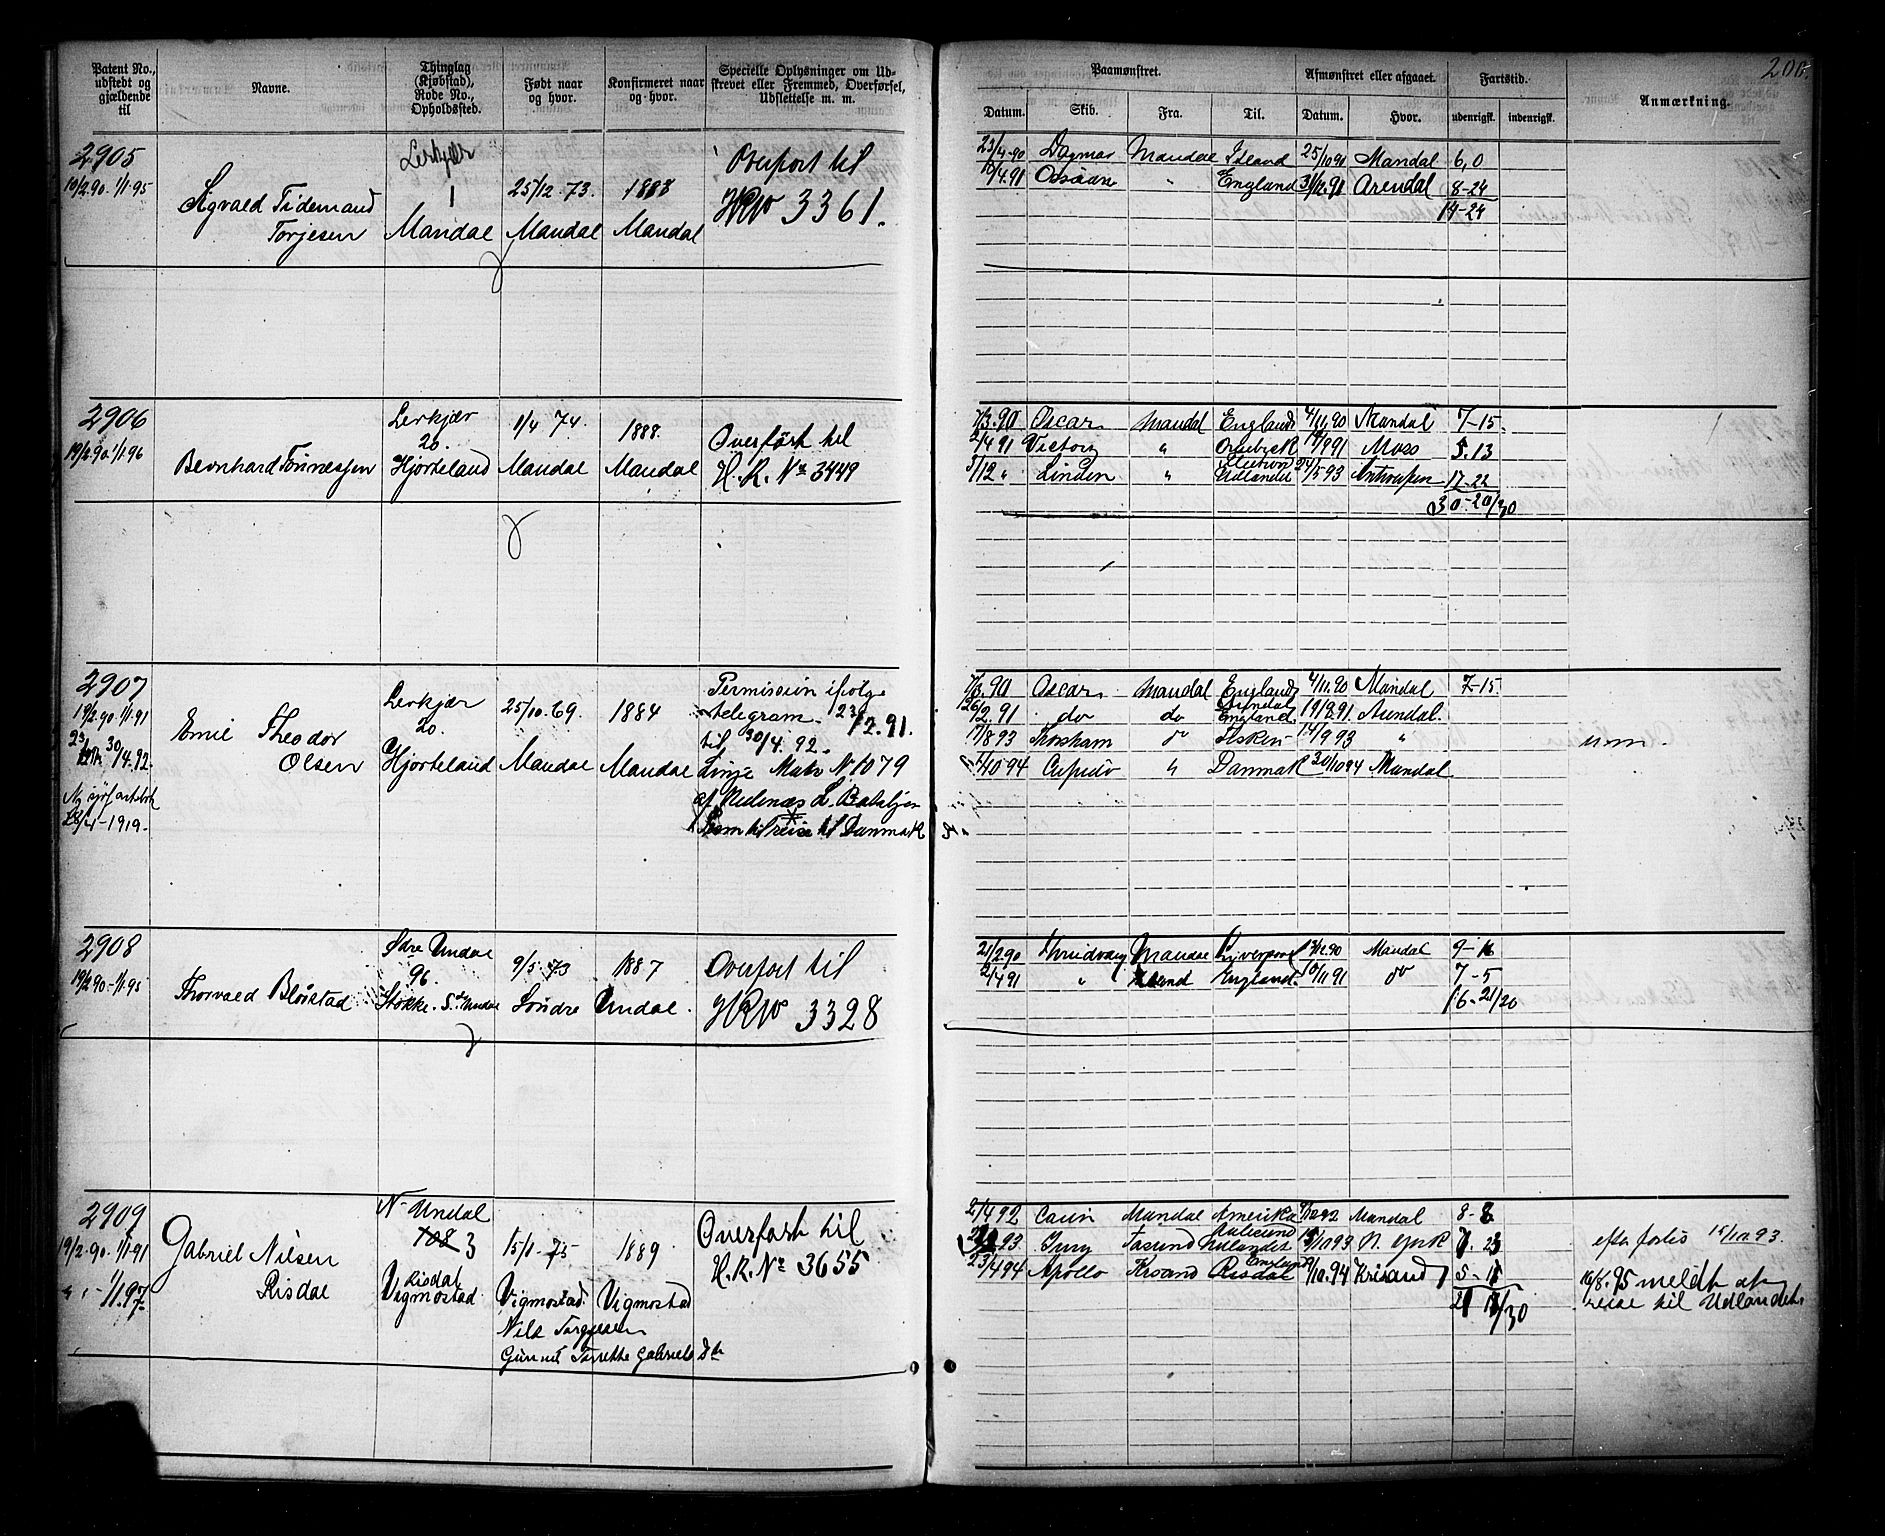 200.
Patent No., udstedt og gjældende til
Navne.
Thinglag (Kjøbstad), Rode No., Opholdssted.
Født naar og hvor.
Konfirmeret naar og hvor.
Specielle Oplysninger om Udskrevet eller Fremmed, Overførsel, Udslettelse m. m.
Paamønstret.
Afmønstret eller afgaaet.
Fartstid.
Anmærkning.
Datum. Skib. Fra. Til. Datum. Hvor. udenrigsk. indenrigsk.
2905
19/2.90. 1/1.95
Sigvald Tidemand
Torjesen
Lerkjær
1
Mandal
25/12-73.
Mandal
1888
Mandal
Overført til
HRNo 3361.
23/4-90 Dagmar Mandal Island 25/10 91 Mandal 6,0
10/4.91 England 31/12.91 Arendal 8-24
14-24
2906
19/2.90 1/1.96
Bernhard Tønnessen
Lerkjær
20.
Hjorteland
1/4 74.
Mandal
1888.
Mandal
Overført til
H. R. No 3449
7/3.90 Oscar Mandal England 4/11.90 Mandal 7-15.
2/4 91 Victory " 91 Moss 5.13
5/12 " Linden " Udlandet 24/5 93 Antwerpen 17-22
30-20/30
2907
19/2.90. 1/1.91
30/4.92.
28/4-1919.
Emil Theodor
Olsen
Lerkjær
20.
Hjorteland
25/10.69.
Mandal
1884
Mandal
Permission ifølge
telegram. 23/12.91.
til 30/4.92.
Linje Matr N 1079
af Nedenæs L. Bataljon
til reise til Danmark
7/3.90 Oscar Mandal England 4/11.90 Mandal 7-15.
26/2.91 do do England 19/8.91. Arendal.
17/8 93 do Fisken 14/9 93 "
10 94 Cupido " Danmark 30/10 94 Mandal
2908
19/2.90.-1/1.95
Thorvald Bløistad
Sdre Undal
96.
Stokke. S. Undal
9/5 73
Søndre
1887
Undal.
Overført til
HRNo 3328
21/2 90 Mandal Liverpool 90 Mandal 9-16
2/4 91 " England. 10/11 91 do 7-5
16-21/20
2909
19/2.90. 1/1.91
" . - 1/1.97
Gabriel Nilsen
Risdal
N- Undal
108 3
Risdal
Vigmostad
15/1-75
Vigmostad.
Nils Torgjesen
1889
Vigmostad
Overført til
H. R. No 3655
2/4 92 Mandal Amerika 92 Mandal 8-8
93 Udlandet 10 93 N. York 7. 23
23/4 94 Apollo Krsand England 10.94 Krisand 5-11
21 12/30
15/10 93.
16/8.95 meldt at
reise til Udlandet.